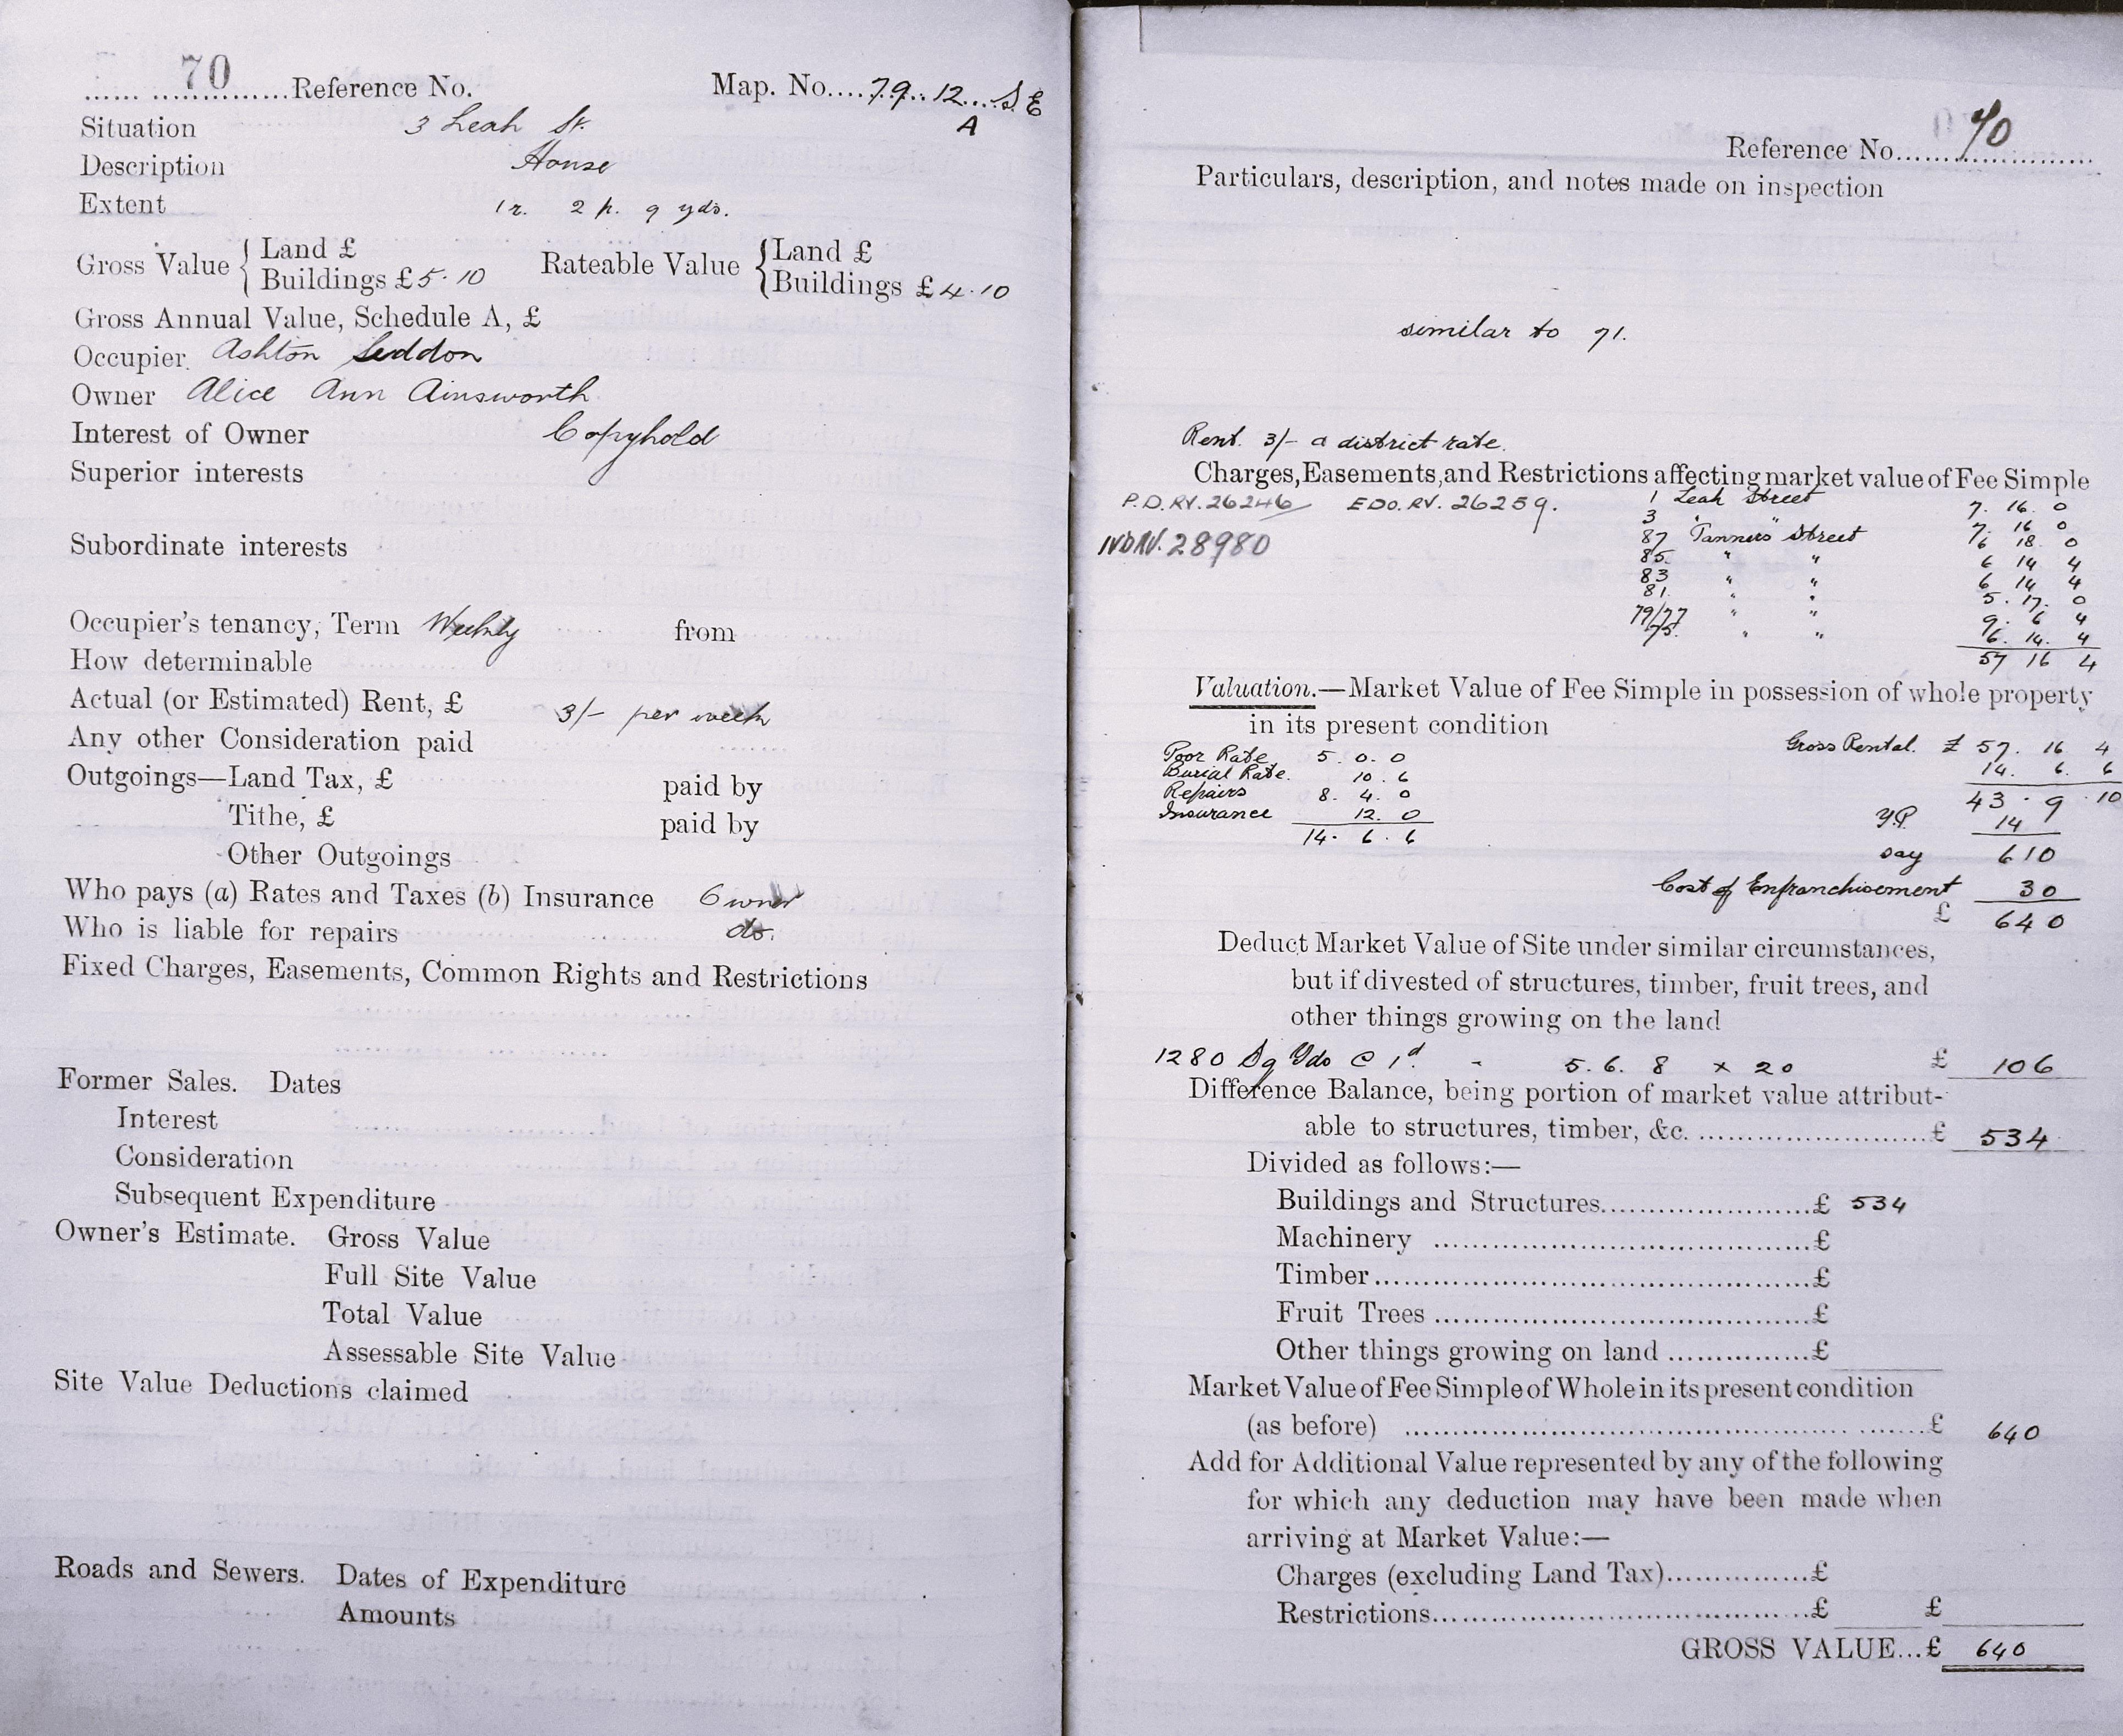 70 Reference No. Map. No. 79. 12. S.E
A
Situation 3 Leah St.
Description House
Extent 1 r. 2 p. 9 yds.
Gross Value { Land £
Buildings £ 5.10
Rateable Value { Land £
Buildings £ 4.10
Gross Annual Value, Schedule A, £
Occupier. Ashton Seddon
Owner Alice Ann Ainsworth
Interest of Owner Copyhold
Superior interests
Subordinate interests
Occupier's tenancy, Term Weekly from
How determinable
Actual (or Estimated) Rent, £ 3/- per week
Any other Consideration paid
Outgoings—Land Tax, £ paid by
Tithe, £ paid by
Other Outgoings
Who pays (a) Rates and Taxes (b) Insurance Owner
Who is liable for repairs do.
Fixed Charges, Easements, Common Rights and Restrictions
Former Sales. Dates
Interest
Consideration
Subsequent Expenditure
Owner's Estimate. Gross Value
Full Site Value
Total Value
Assessable Site Value
Site Value Deductions claimed
Roads and Sewers. Dates of Expenditure
Amounts
Reference No. 70
Particulars, description, and notes made on inspection
similar to 71.
Rent. 3/- a district rate.
Charges, Easements, and Restrictions affecting market value of Fee Simple
P.D. RV. 26246 EDO. RV. 26259.
IVD RV. 28980
1 Leah Street 7. 16. 0
3 " " 7. 16 0
87 Tanners Street 7 18. 0
85. " " 6 14 4
83 " " 6 14 4
81. " " 5. 17. 0
79/77 " " 9. 6 4
75. " " 6. 14. 4
57 16 4
Valuation.—Market Value of Fee Simple in possession of whole property
in its present condition
Gross Rental. £ 57. 16 4
Poor Rate 5. 0. 0
14. 6. 6
Burial Rate. 10. 6
43. 9. 10
Repairs 8. 4. 0
Y.P. 14
Insurance 12. 0
14. 6. 6
say 610
Cost of Enfranchisement 30
£ 640
Deduct Market Value of Site under similar circumstances,
but if divested of structures, timber, fruit trees, and
other things growing on the land
1280 Sq Yds @ 1d - 5. 6. 8 x 20 £ 106
Difference Balance, being portion of market value attribut-
able to structures, timber, &c. £ 534
Divided as follows:—
Buildings and Structures £ 534
Machinery £
Timber £
Fruit Trees £
Other things growing on land £
Market Value of Fee Simple of Whole in its present condition
(as before) £ 640
Add for Additional Value represented by any of the following
for which any deduction may have been made when
arriving at Market Value:—
Charges (excluding Land Tax) £
Restrictions £ £
GROSS VALUE... £ 640